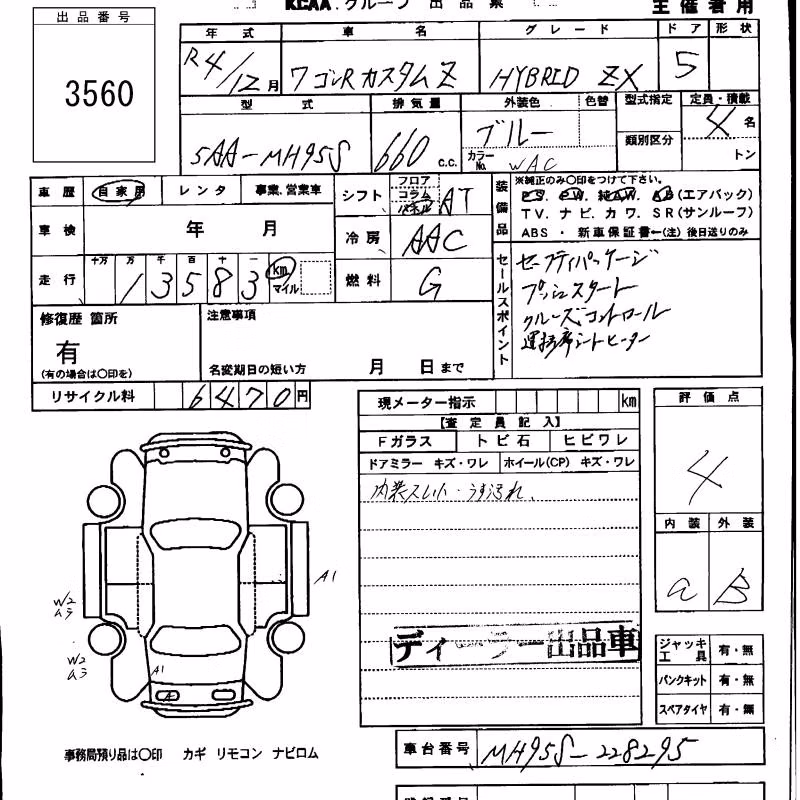 KCAA.グループ 出品票 主催者用
出品番号
3560
年式 車名 グレード ドア 形状
R4/12月 ワゴンRカスタムZ HYBRID ZX 5
型式 排気量 外装色 色替 型式指定 定員・積載
5AA-MH95S 660 c.c. ブルー 4名
カラーNo. WAC 類別区分 トン
車歴 自家用 レンタ 事業、営業車
シフト フロア コラム パネル AT
装備品 ※純正のみ〇印をつけて下さい。
PS. PW. 純AW. AB(エアバッグ)
TV. ナビ. カワ. SR(サンルーフ)
ABS ・ 新車保証書←(注)後日送りのみ
車検 年 月
冷房 AAC
走行 十万 万 千 百 十 一
13583 km マイル
燃料 G
セールスポイント
セーフティパッケージ
プッシュスタート
クルーズコントロール
運転席シートヒーター
修復歴 箇所
有
(有の場合は〇印を)
注意事項
名変期日の短い方 月 日まで
リサイクル料 6470円
現メーター指示 km
【査定員記入】
Fガラス トビ石 ヒビワレ
ドアミラー キズ・ワレ ホイール(CP) キズ・ワレ
内装スレ小・うす汚れ、
評価点
4
内装 外装
a B
A1
W2
ムラ
W2
ムラ
A1
A
ディーラー出品車
ジャッキ工具 有・無
パンクキット 有・無
スペアタイヤ 有・無
事務局預り品は〇印 カギ リモコン ナビロム
車台番号 MH95S-228295